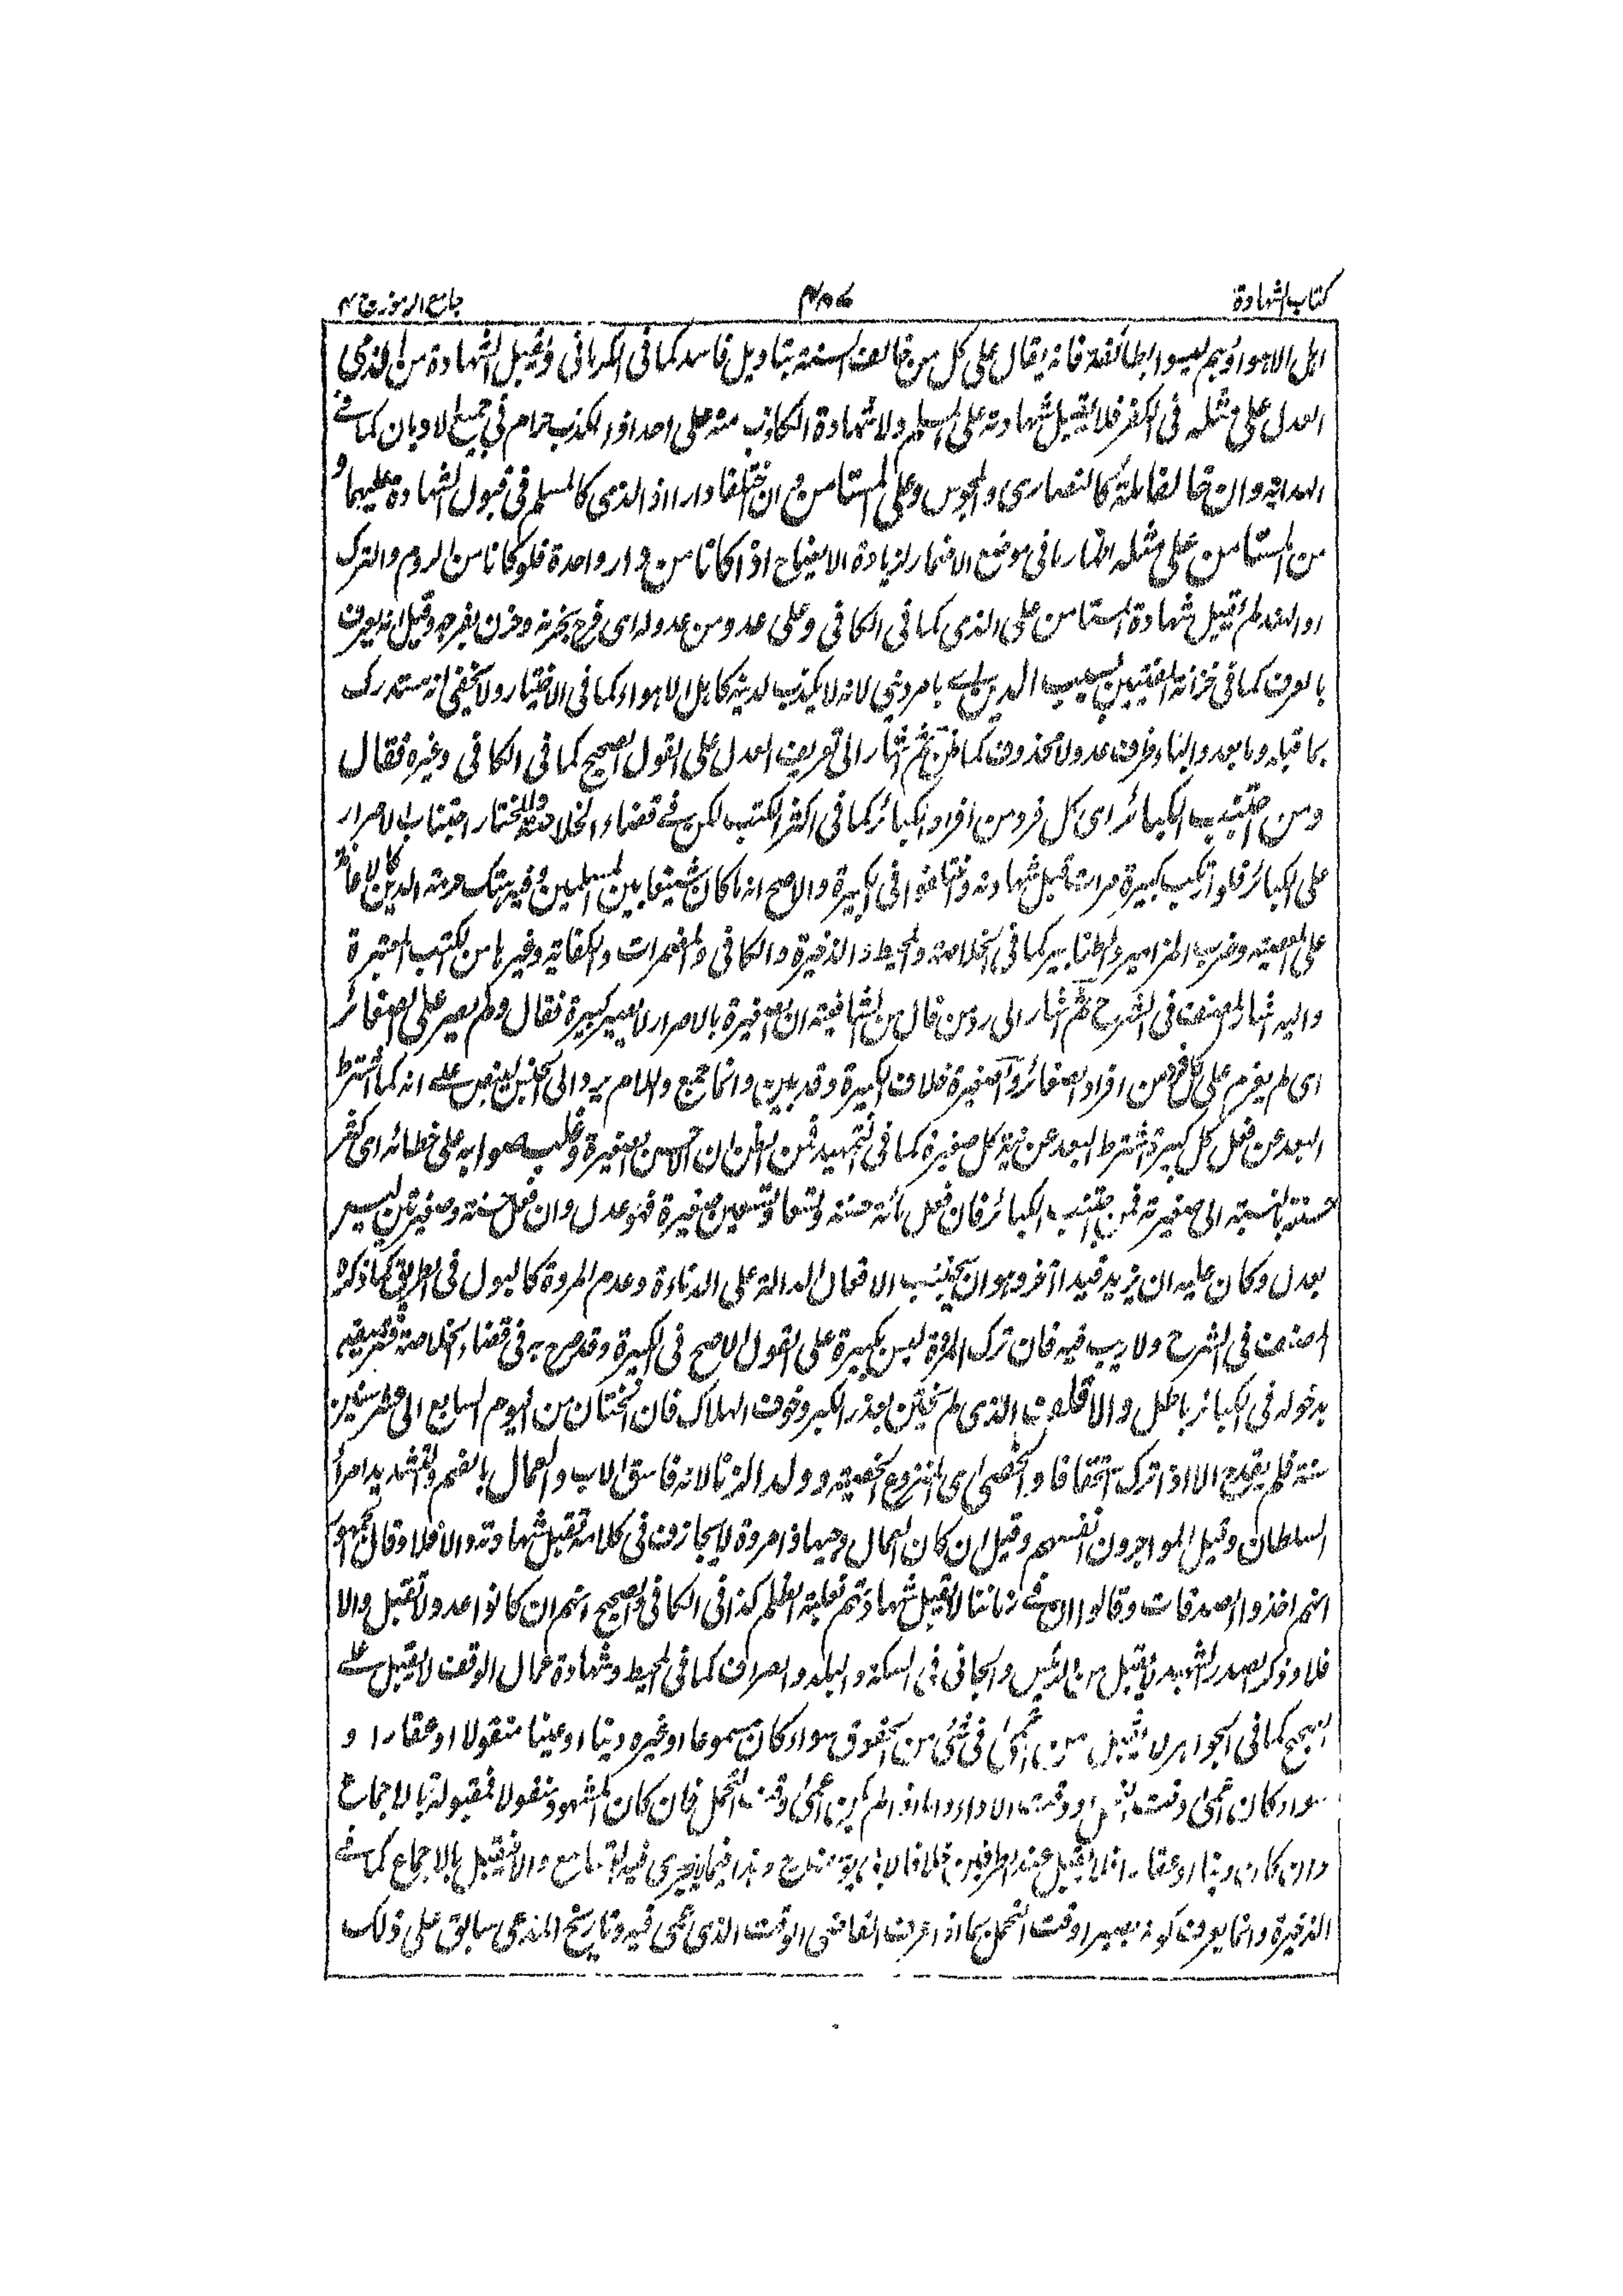 كتاب الشهادة
جامع الرموز ج ٢
اهل الاهواء وهم ليسوا بطائفة فانه يقال على كل من خالف السنة بتاويل فاسد كما فى الكرمانى وتقبل الشهادة من الذمى
العدل على مثله فى الكفر فلا يقبل شهادته على المسلم ولا شهادة الكاذب منه على احد اذ الكذب حرام فى جميع الاديان كما فى
الهداية وان خالفا ملة كالنصارى والمجوس وعلى المستامن وان اختلفا دارا اذ الذمى كالمسلم فى قبول الشهادة عليهما و
من المستامن على مثله اظهارا فى موضع الاضمار لزيادة الايضاح اذا كانا من دار واحدة فلو كانا من الروم والترك
او الهند لم تقبل شهادة المستامن على الذمى كما فى الكافى وعلى عدو من عدوله اى فرح بحزنه وحزن بفرحه وقيل انه يعرف
بالعرف كما فى خزانة المفتيين بسبب الدين اى بامر دينى لانه لا يكذب لدينه كاهل الاهواء كما فى الاختيار ولا يخفى انه مستدرك
بما قبله وما بعده والباء ظرف عدو لا محذوف كما ظن ثم اشار الى تعريف العدل على القول الصحيح كما فى الكافى وغيره فقال
ومن اجتنب الكبائر اى كل فرد من افراد الكبائر كما فى اكثر الكتب لكن فى قضاء الخلاصة المختار اجتناب الاصرار
على الكبائر فلو ارتكب كبيرة مرات تقبل شهادته واختلفوا فى الكبيرة والاصح انه ما كان شنيعا بين المسلمين وفيه هتك حرمة الدين كالاعانة
على المعصية وضرب المزامير والطنابير كما فى الخلاصة والمحيط والذخيرة والكافى والمضمرات والكفاية وغيرها من الكتب المعتبرة
واليه اشار المصنف فى الشرح ثم اشار الى رد من قال من الشافعية ان الصغيرة بالاصرار لا تصير كبيرة فقال ولم يصر على الصغائر
اى لم يعزم على كل فرد من افراد الصغائر والصغيرة خلاف الكبيرة وقد بين وانما جمع واللام يرد الى الجنس لينص على انه كما اشترط
البعد عن فعل كل كبيرة اشترط البعد عن نية كل صغيرة كما فى التمهيد فمن الظن ان الاحسن الصغيرة وغلب صوابه على خطائه اى كثر
حسنته بالنسبة الى صغيرته فمن اجتنب الكبائر فان فعل مائة حسنة وتسعا وتسعين صغيرة فهو عدل وان فعل حسنة وصغيرتين ليس
بعدل وكان عليه ان يزيد قيدا آخر وهو ان يجتنب الافعال الدالة على الدناءة وعدم المروة كالبول فى الطريق كما ذكره
المصنف فى الشرح ولا ريب فيه فان ترك المروة ليس بكبيرة على القول الاصح فى الكبيرة وقد صرح به فى قضاء الخلاصة
بدخوله فى الكبائر باطل والاقلف الذى لم يختتن بعذر الكبر وخوف الهلاك فان الختان من اليوم السابع الى عشر سنين
سنة فلم يقدح الا اذا ترك استخفافا والخصى اى المنزوع الخصية وولد الزنا لانه فاسق الاب والعمال بالضم والتشديد امراء
السلطان وقيل المواجرون انفسهم وقيل ان كان العمال وجيها ذا مروة لا يجازف فى كلامه تقبل شهادته والا فلا وقال
انهم اخذوا الصدقات وقالوا ان فى زماننا لا تقبل شهادتهم لغلبة الظلم كذا فى الكافى والصحيح انهم ان كانوا عدولا تقبل والا
فلا وذكر الصدر الشهيد لا تقبل من الرئيس والجابى فى السكة والبلد والصراف كما فى المحيط وشهادة عمال الوقف لا تقبل على
الصحيح كما فى الجواهر لا تقبل من اعمى فى شئ من الحقوق سواء كان مسموعا او غيره دينا او عينا منقولا او عقارا و
سواء كان اعمى وقت التحمل او وقت الاداء واما اذا لم يكن اعمى وقت التحمل فان كان المشهود منقولا فمقبولة بالاجماع
وان كان دينا او عقارا فلا تقبل عند الطرفين خلافا لابى يوسف رح وهذا فيما لا يجرى فيه التسامع والا فتقبل بالاجماع كما فى
الذخيرة وانما يعرف كونه بصيرا وقت التحمل بما اذا عرف القاضى الوقت الذى عمى فيه وتاريخ المدعى سابق على ذلك